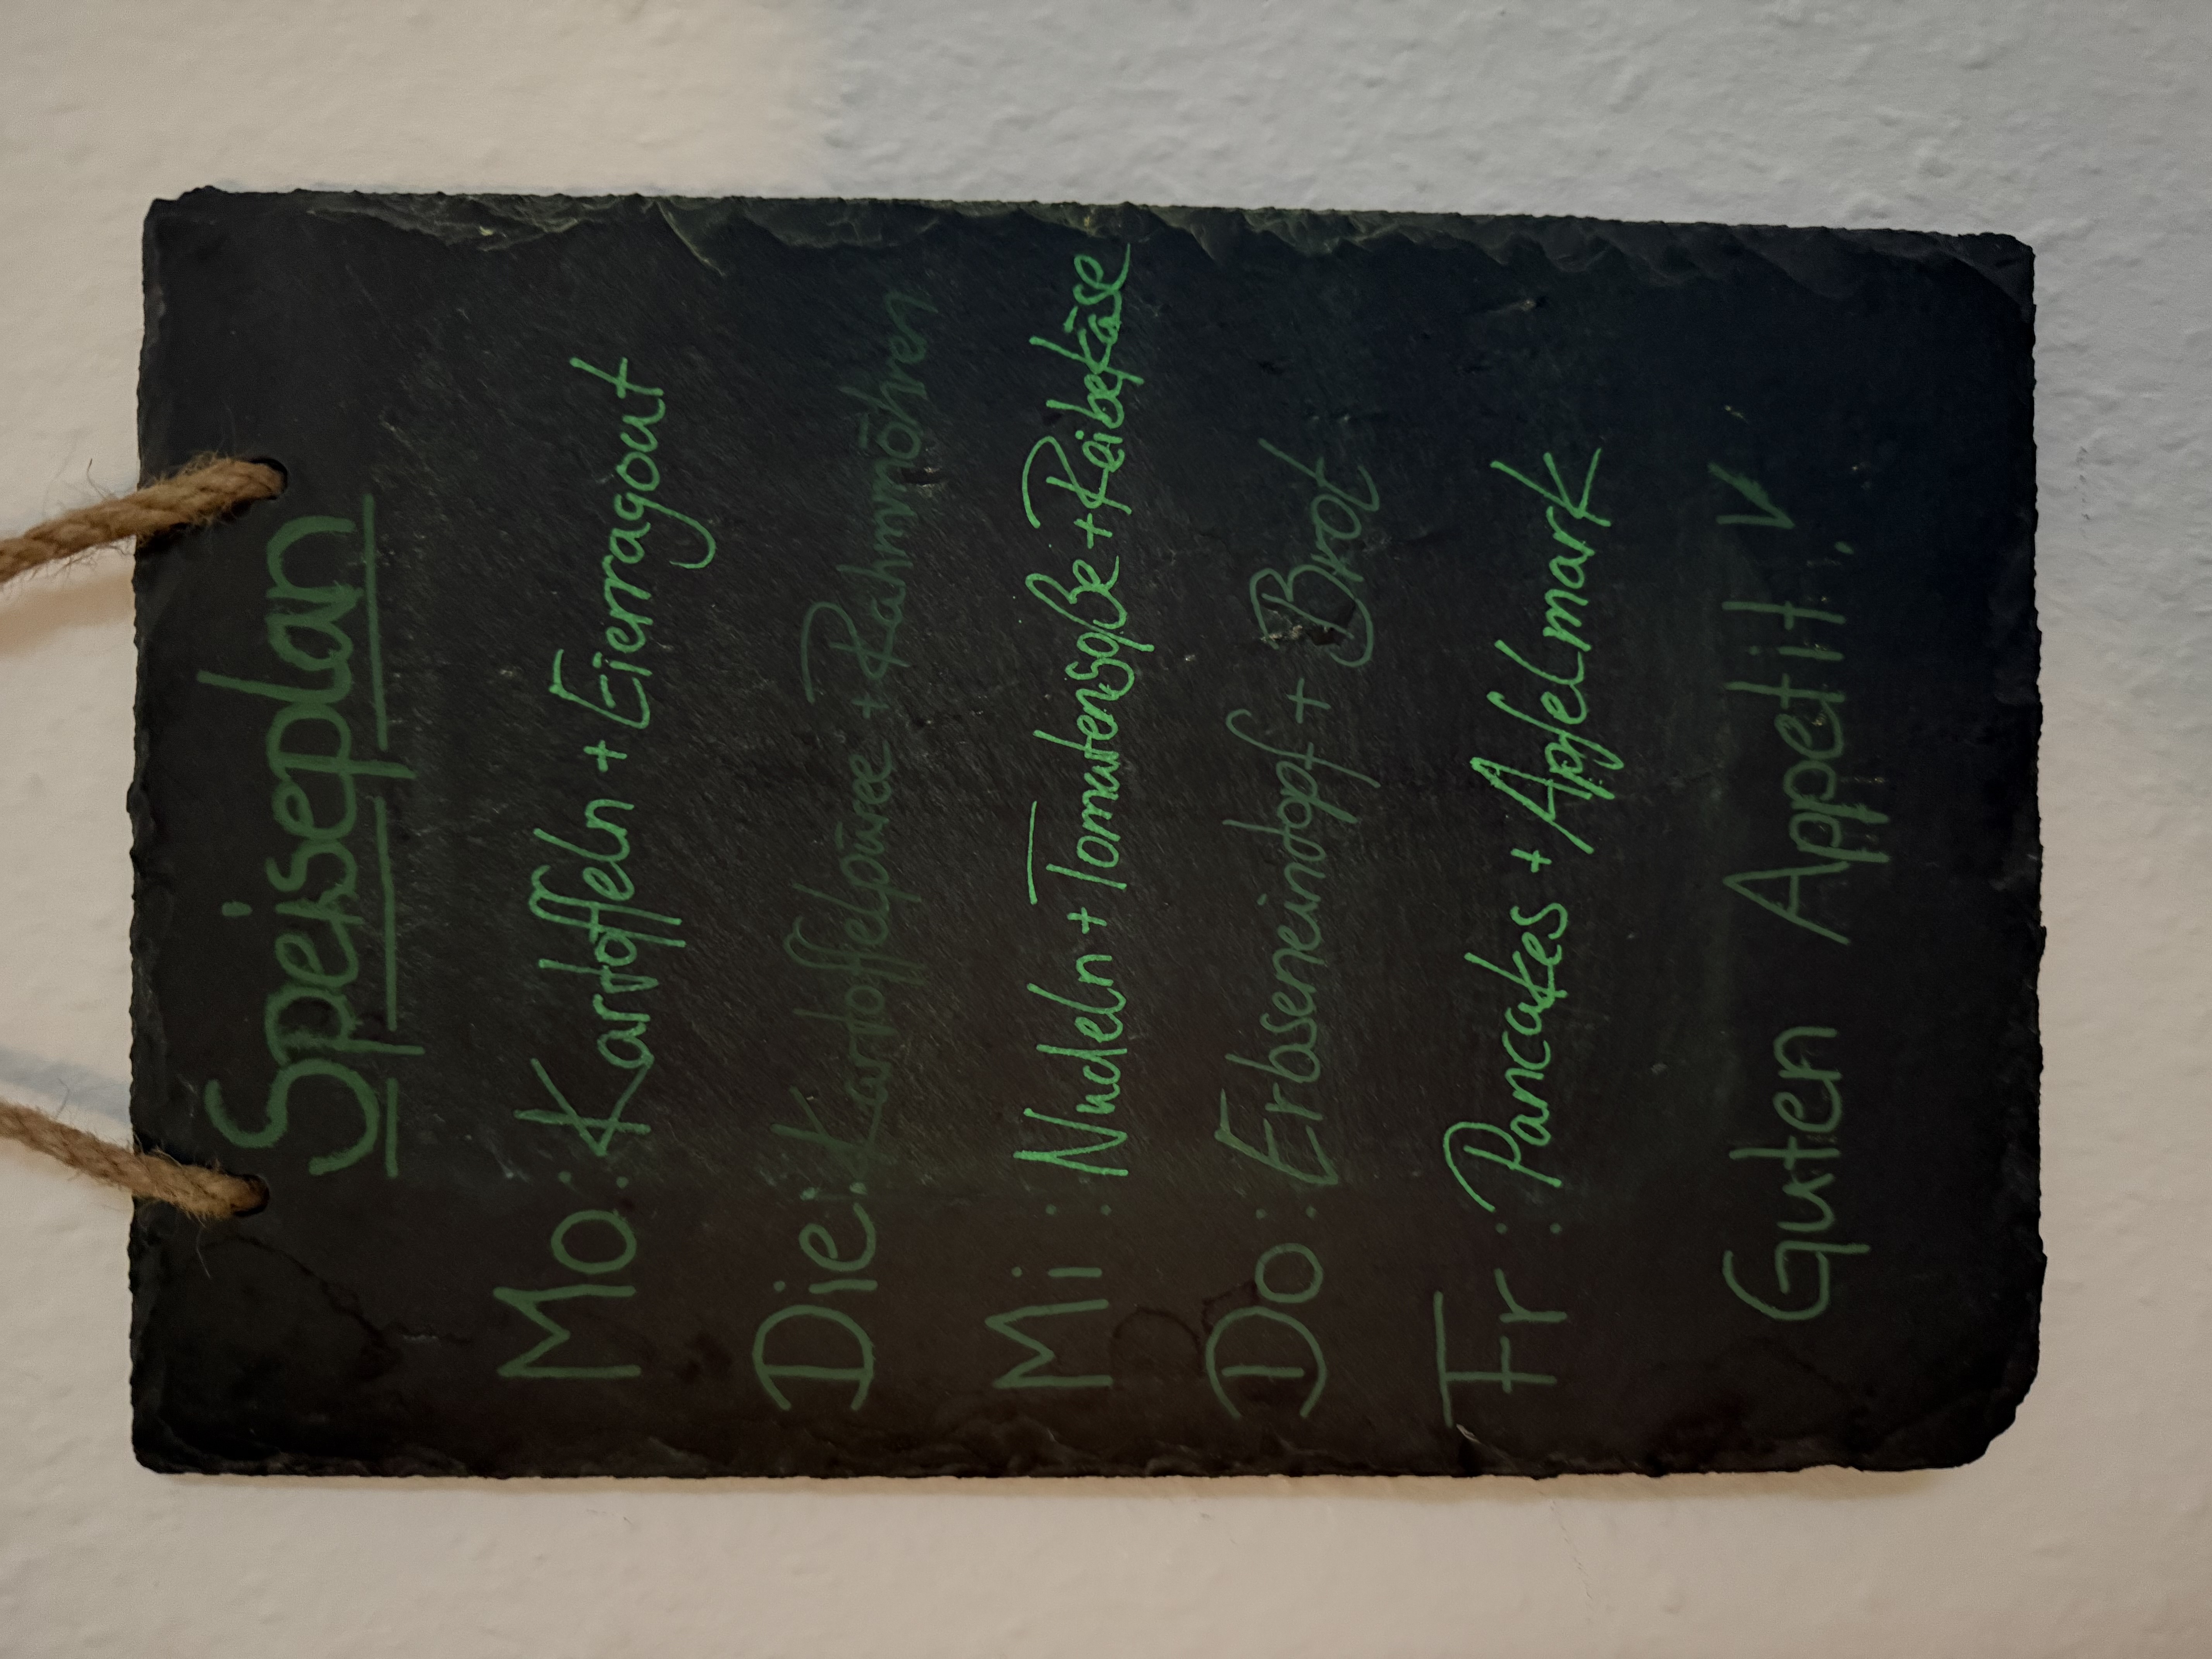 Speiseplan
Mo: Kartoffeln + Eierragout
Die: Kartoffelpüree + Rahmmöhren
Mi: Nudeln + Tomatensoße + Reibekäse
Do: Erbseneintopf + Brot
Fr: Pancakes + Apfelmark
Guten Appetit!